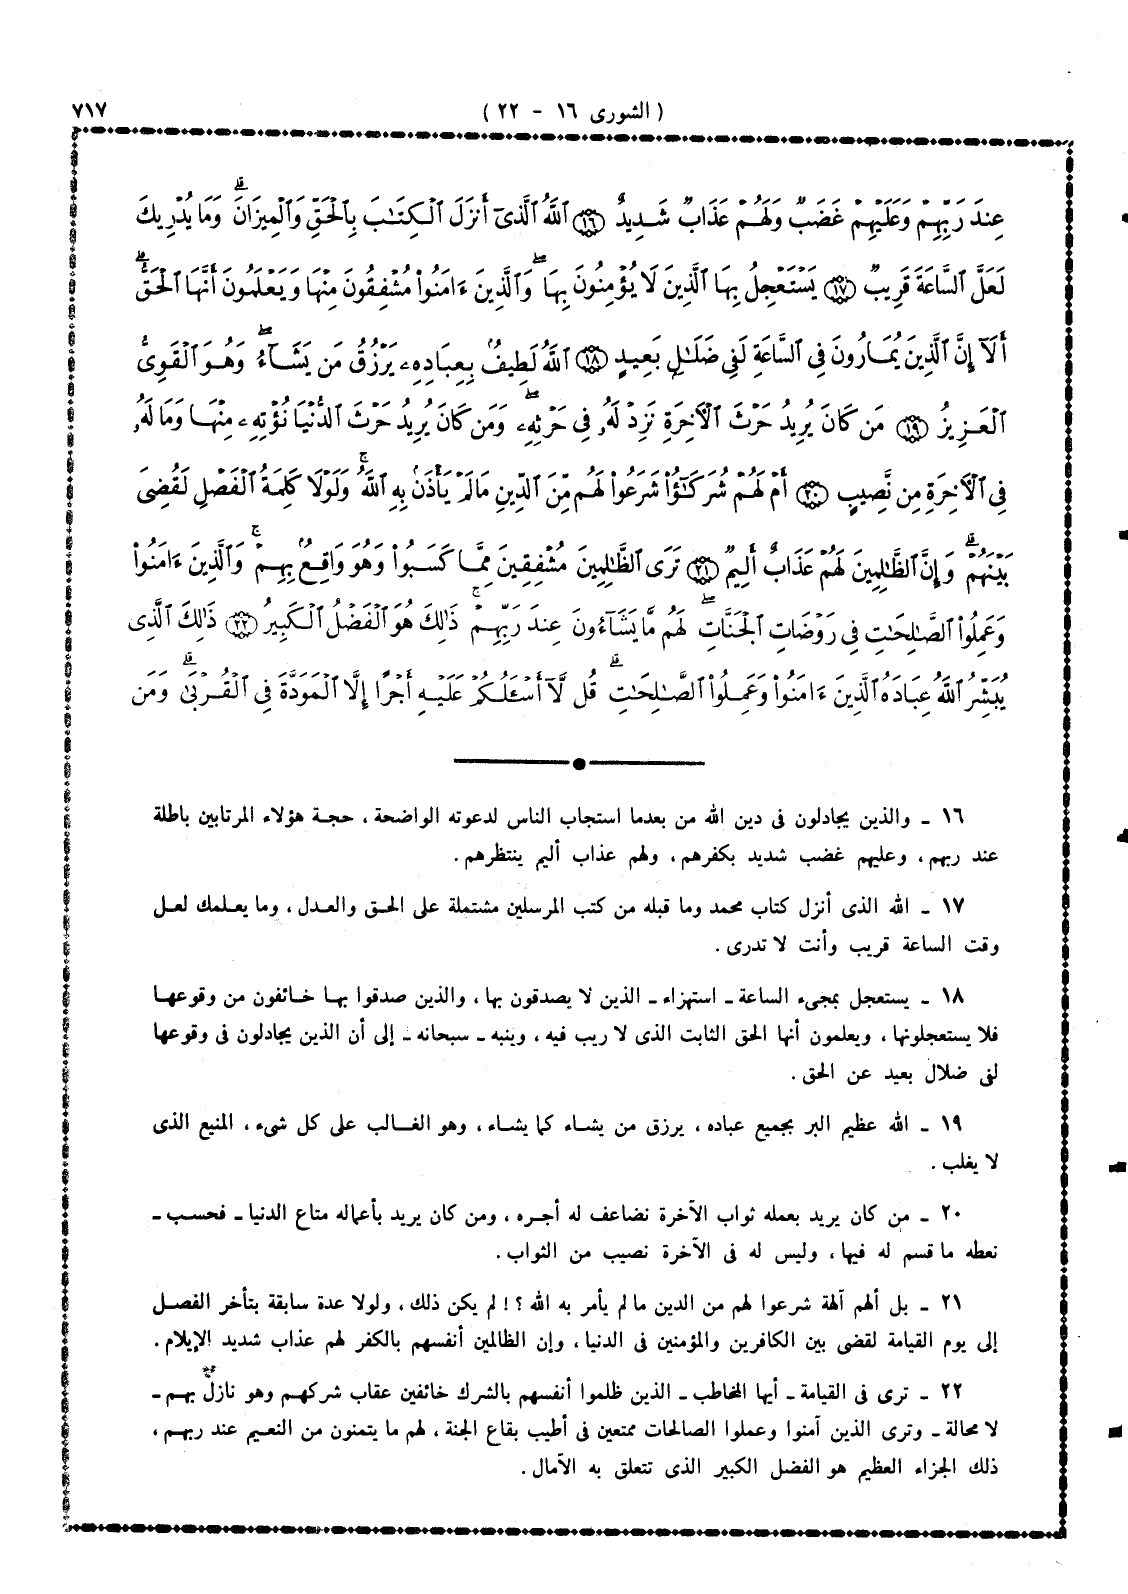 ( الشورى ١٦ - ٢٢ )
٧١٧
عِندَ رَبِّهِمْ وَعَلَيْهِمْ غَضَبٌ وَلَهُمْ عَذَابٌ شَدِيدٌ ١٦ ٱللَّهُ ٱلَّذِىٓ أَنزَلَ ٱلْكِتَٰبَ بِٱلْحَقِّ وَٱلْمِيزَانَ ۗ وَمَا يُدْرِيكَ
لَعَلَّ ٱلسَّاعَةَ قَرِيبٌ ١٧ يَسْتَعْجِلُ بِهَا ٱلَّذِينَ لَا يُؤْمِنُونَ بِهَا ۖ وَٱلَّذِينَ ءَامَنُوا۟ مُشْفِقُونَ مِنْهَا وَيَعْلَمُونَ أَنَّهَا ٱلْحَقُّ ۗ
أَلَآ إِنَّ ٱلَّذِينَ يُمَارُونَ فِى ٱلسَّاعَةِ لَفِى ضَلَٰلٍۭ بَعِيدٍ ١٨ ٱللَّهُ لَطِيفٌۢ بِعِبَادِهِۦ يَرْزُقُ مَن يَشَآءُ ۖ وَهُوَ ٱلْقَوِىُّ
ٱلْعَزِيزُ ١٩ مَن كَانَ يُرِيدُ حَرْثَ ٱلْـَٔاخِرَةِ نَزِدْ لَهُۥ فِى حَرْثِهِۦ ۖ وَمَن كَانَ يُرِيدُ حَرْثَ ٱلدُّنْيَا نُؤْتِهِۦ مِنْهَا وَمَا لَهُۥ
فِى ٱلْـَٔاخِرَةِ مِن نَّصِيبٍ ٢٠ أَمْ لَهُمْ شُرَكَٰٓؤُا۟ شَرَعُوا۟ لَهُم مِّنَ ٱلدِّينِ مَا لَمْ يَأْذَنۢ بِهِ ٱللَّهُ ۚ وَلَوْلَا كَلِمَةُ ٱلْفَصْلِ لَقُضِىَ
بَيْنَهُمْ ۗ وَإِنَّ ٱلظَّٰلِمِينَ لَهُمْ عَذَابٌ أَلِيمٌ ٢١ تَرَى ٱلظَّٰلِمِينَ مُشْفِقِينَ مِمَّا كَسَبُوا۟ وَهُوَ وَاقِعٌۢ بِهِمْ ۗ وَٱلَّذِينَ ءَامَنُوا۟
وَعَمِلُوا۟ ٱلصَّٰلِحَٰتِ فِى رَوْضَاتِ ٱلْجَنَّاتِ ۖ لَهُم مَّا يَشَآءُونَ عِندَ رَبِّهِمْ ۚ ذَٰلِكَ هُوَ ٱلْفَضْلُ ٱلْكَبِيرُ ٢٢ ذَٰلِكَ ٱلَّذِى
يُبَشِّرُ ٱللَّهُ عِبَادَهُ ٱلَّذِينَ ءَامَنُوا۟ وَعَمِلُوا۟ ٱلصَّٰلِحَٰتِ ۗ قُل لَّآ أَسْـَٔلُكُمْ عَلَيْهِ أَجْرًا إِلَّا ٱلْمَوَدَّةَ فِى ٱلْقُرْبَىٰ ۗ وَمَن
١٦ ـ والذين يجادلون فى دين الله من بعدما استجاب الناس لدعوته الواضحة ، حجة هؤلاء المرتابين باطلة
عند ربهم ، وعليهم غضب شديد بكفرهم ، ولهم عذاب أليم ينتظرهم .
١٧ ـ الله الذى أنزل كتاب محمد وما قبله من كتب المرسلين مشتملة على الحق والعدل ، وما يعلمك لعل
وقت الساعة قريب وأنت لا تدرى .
١٨ ـ يستعجل بمجىء الساعة ـ استهزاء ـ الذين لا يصدقون بها ، والذين صدقوا بها خائفون من وقوعها
فلا يستعجلونها ، ويعلمون أنها الحق الثابت الذى لا ريب فيه ، وينبه ـ سبحانه ـ إلى أن الذين يجادلون فى وقوعها
لفى ضلال بعيد عن الحق .
١٩ ـ الله عظيم البر بجميع عباده ، يرزق من يشاء كما يشاء ، وهو الغالب على كل شىء ، المنيع الذى
لا يغلب .
٢٠ ـ من كان يريد بعمله ثواب الآخرة نضاعف له أجره ، ومن كان يريد بأعماله متاع الدنيا ـ فحسب ـ
نعطه ما قسم له فيها ، وليس له فى الآخرة نصيب من الثواب .
٢١ ـ بل ألهم آلهة شرعوا لهم من الدين ما لم يأمر به الله ؟ ! لم يكن ذلك ، ولولا عدة سابقة بتأخر الفصل
إلى يوم القيامة لقضى بين الكافرين والمؤمنين فى الدنيا ، وإن الظالمين أنفسهم بالكفر لهم عذاب شديد الإيلام .
٢٢ ـ ترى فى القيامة ـ أيها المخاطب ـ الذين ظلموا أنفسهم بالشرك خائفين عقاب شركهم وهو نازلٌ بهم ـ
لا محالة ـ وترى الذين آمنوا وعملوا الصالحات ممتعين فى أطيب بقاع الجنة ، لهم ما يتمنون من النعيم عند ربهم ،
ذلك الجزاء العظيم هو الفضل الكبير الذى تتعلق به الآمال .